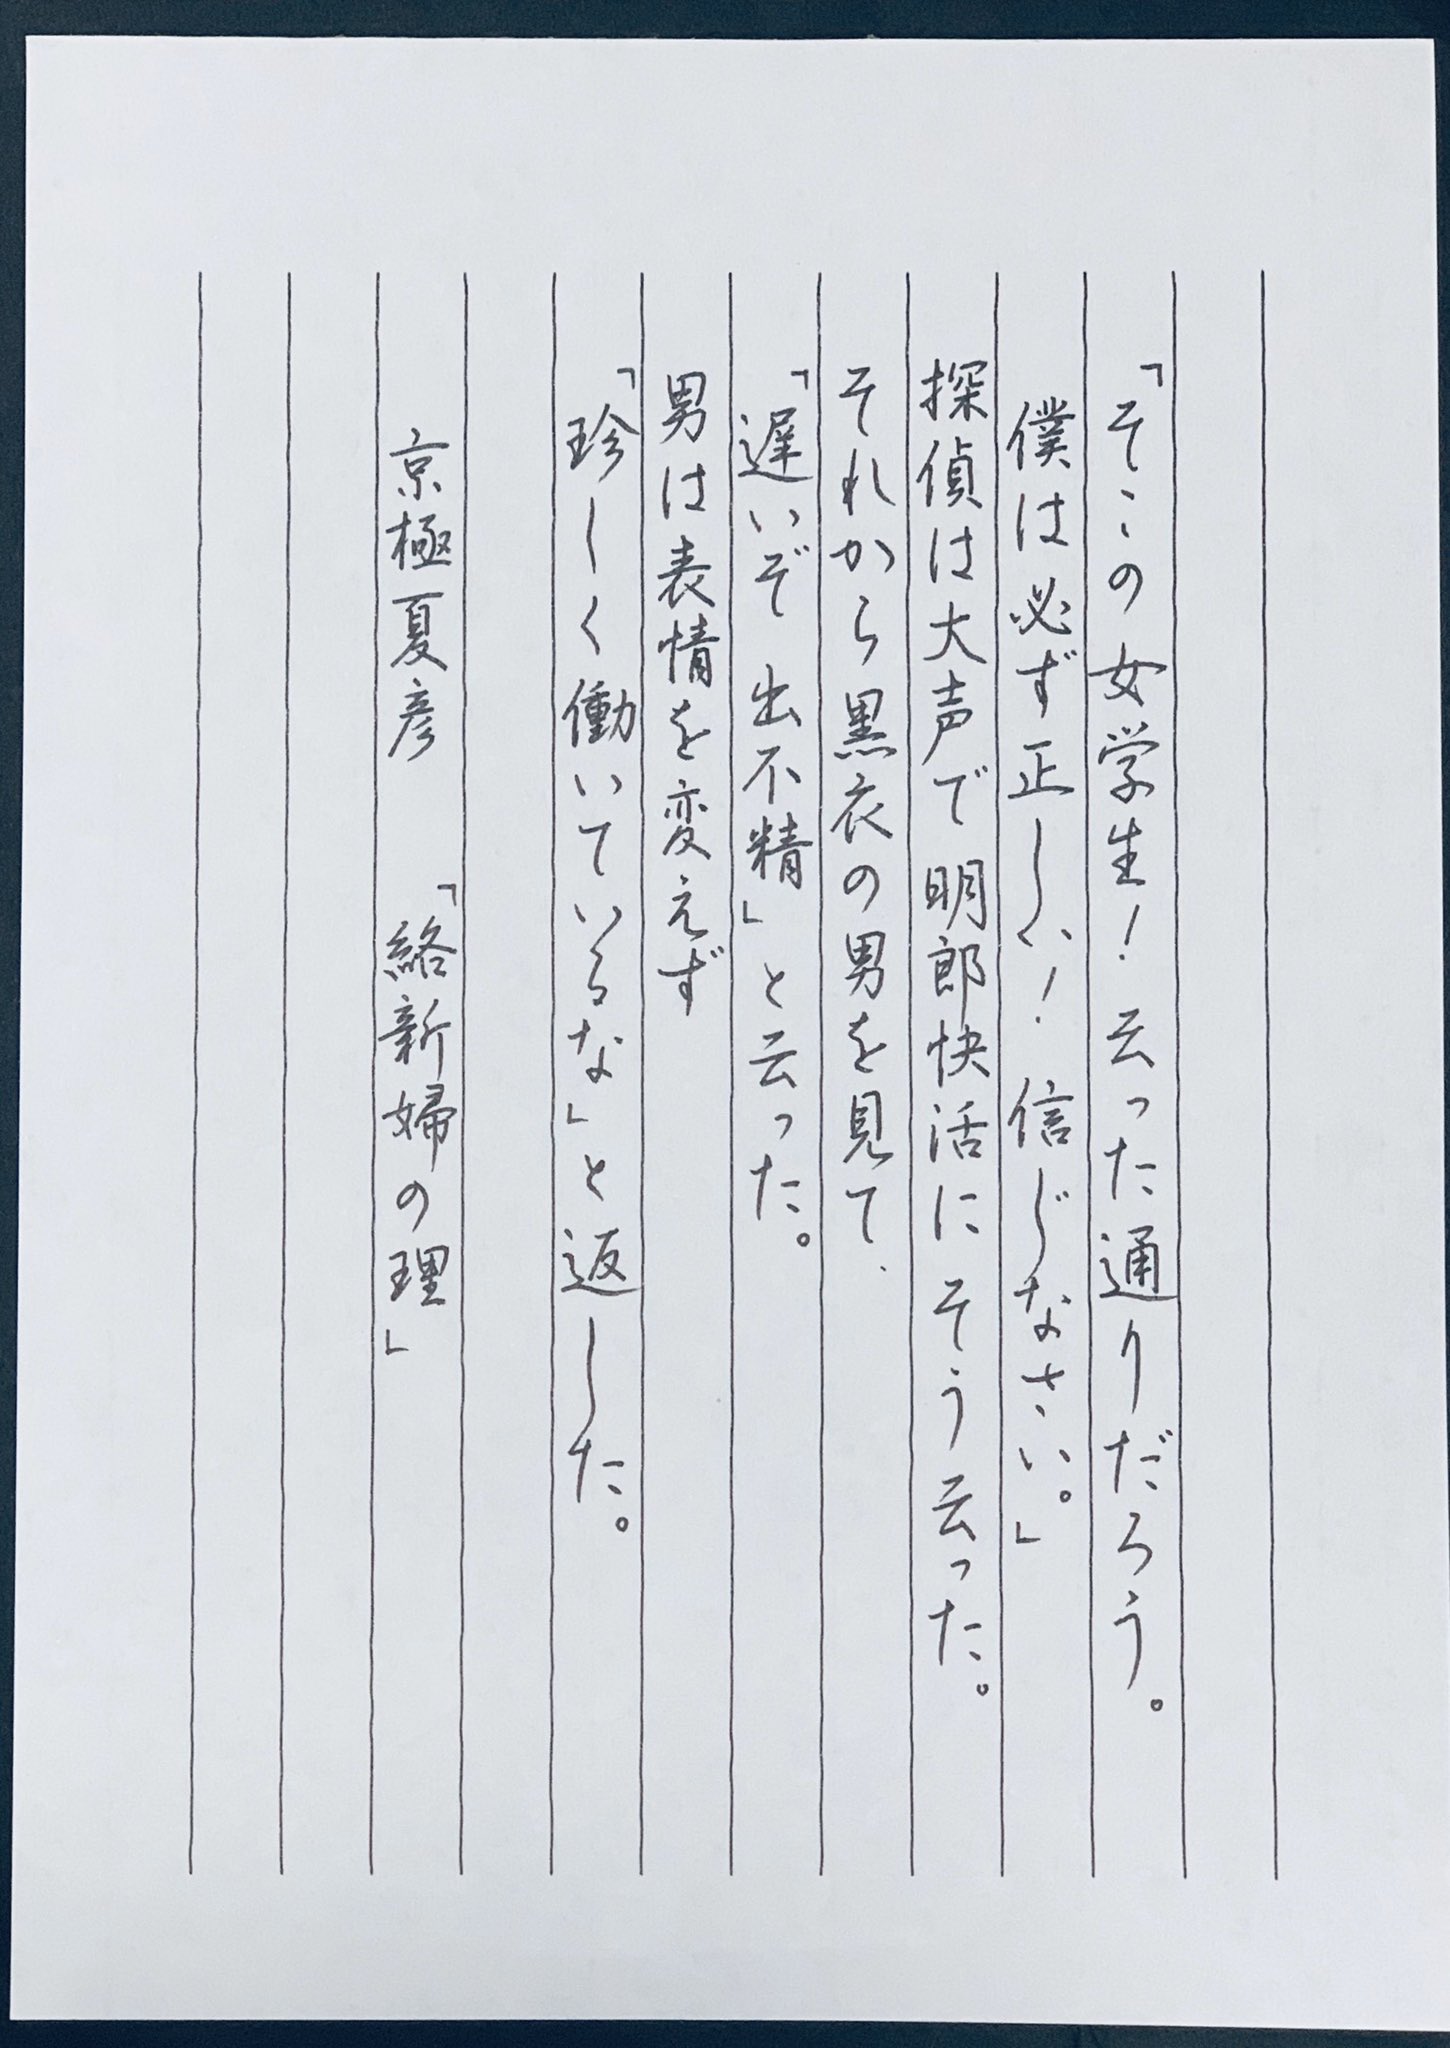 「そこの女学生！云った通りだろう。
僕は必ず正しい！信じなさい。」
探偵は大声で明郎快活にそう云った。
それから黒衣の男を見て、
「遅いぞ出不精」と云った。
男は表情を変えず
「珍しく働いているな」と返した。
京極夏彦　「絡新婦の理」